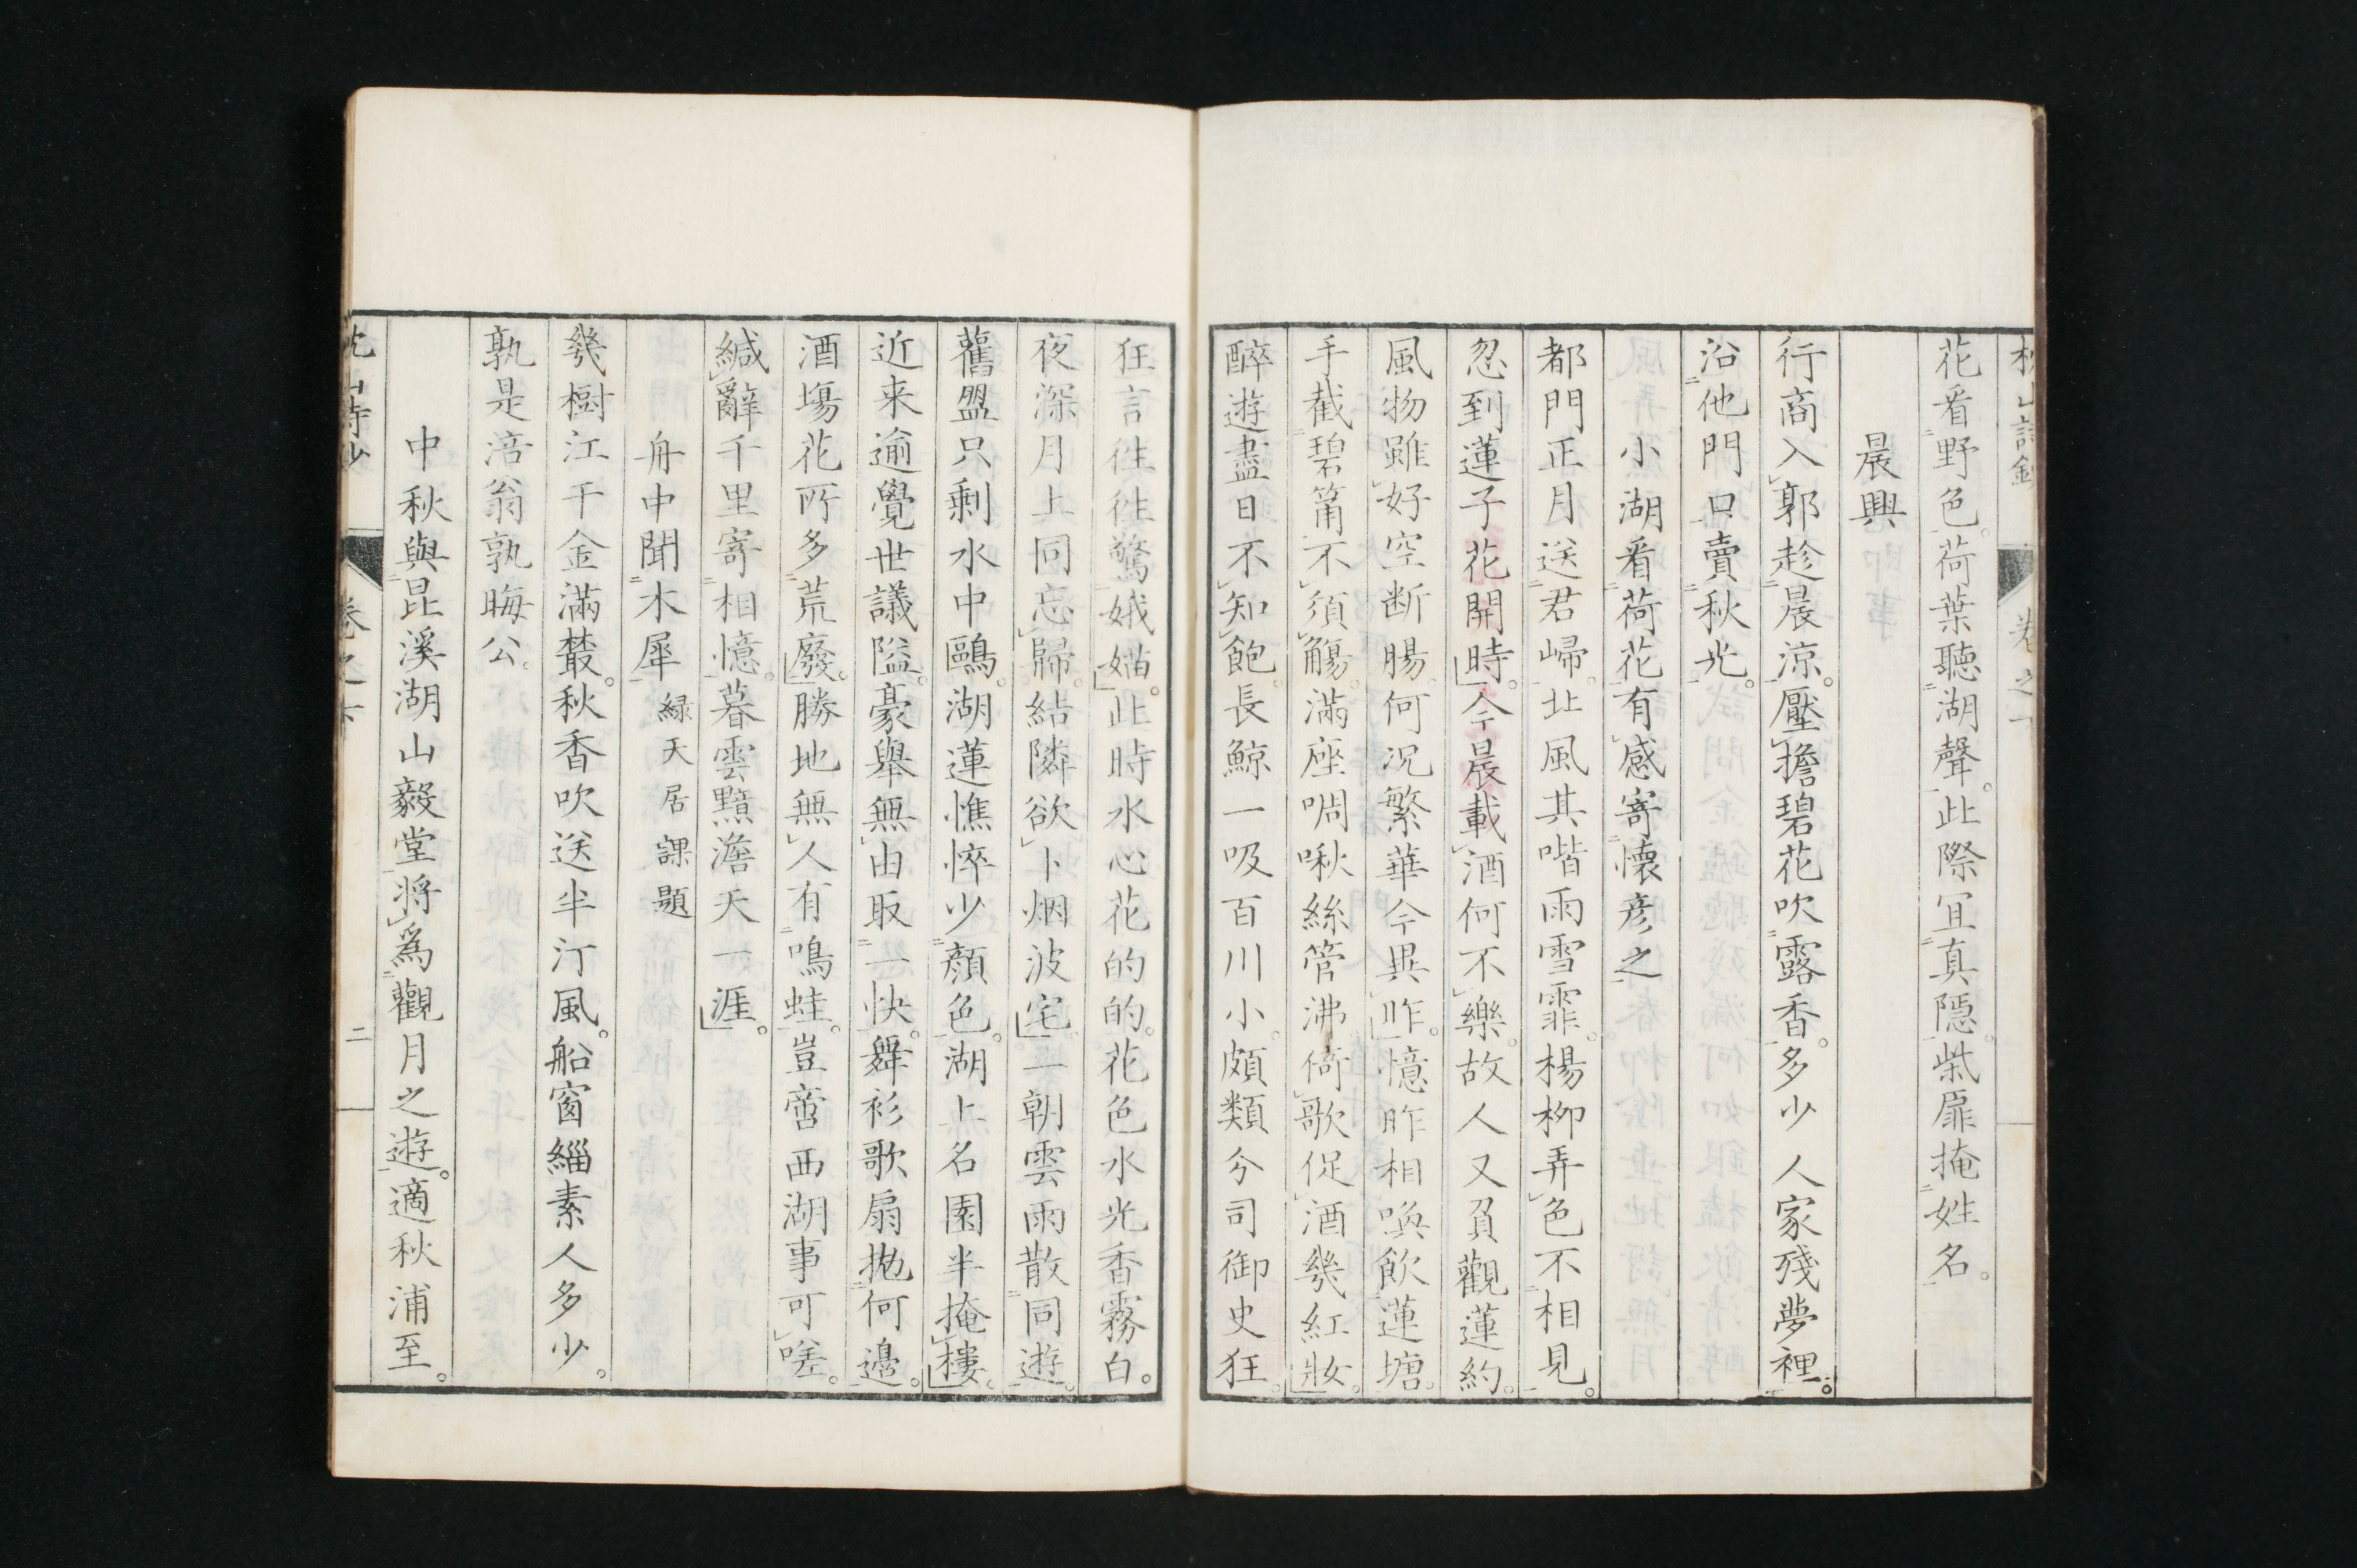 花看野色。荷葉聽湖聲。此際宜真隱。柴扉掩姓名。
晨興
行商入郭趁晨涼。壓擔碧花吹露香。多少人家殘夢裡。
沿他門口賣秋光。
小湖看荷花有感寄懷彦之
都門正月送君歸。北風其喈雨雪霏。楊柳弄色不相見。
忽到蓮子花開時。今晨載酒何不樂。故人又負觀蓮約。
風物雖好空断腸。何况繁華今異昨。憶昨相喚飲蓮塘。
手截碧筩不須觴。滿座啁啾絲管沸。倚歌促酒幾紅妝。
醉遊盡日不知飽。長鯨一吸百川小。頗類分司御史狂。
狂言往往驚娥媌。此時水心花的的。花色水光香霧白。
夜深月上同忘歸。結隣欲卜烟波宅。一朝雲雨散同遊。
舊盟只剩水中鷗。湖蓮憔悴少顏色。湖上名園半掩樓。
近来逾覺世議隘。豪舉無由取一快。舞衫歌扇拋何邊。
酒場花所多荒廢。勝地無人有鳴蛙。豈啻西湖事可嗟。
緘辭千里寄相憶。暮雲黯澹天一涯。
舟中聞木犀 緑天居課題
幾樹江干金滿叢。秋香吹送半汀風。船窗緇素人多少。
孰是涪翁孰晦公。
中秋與昆溪湖山毅堂将為觀月之遊。適秋浦至。
卷之下
二